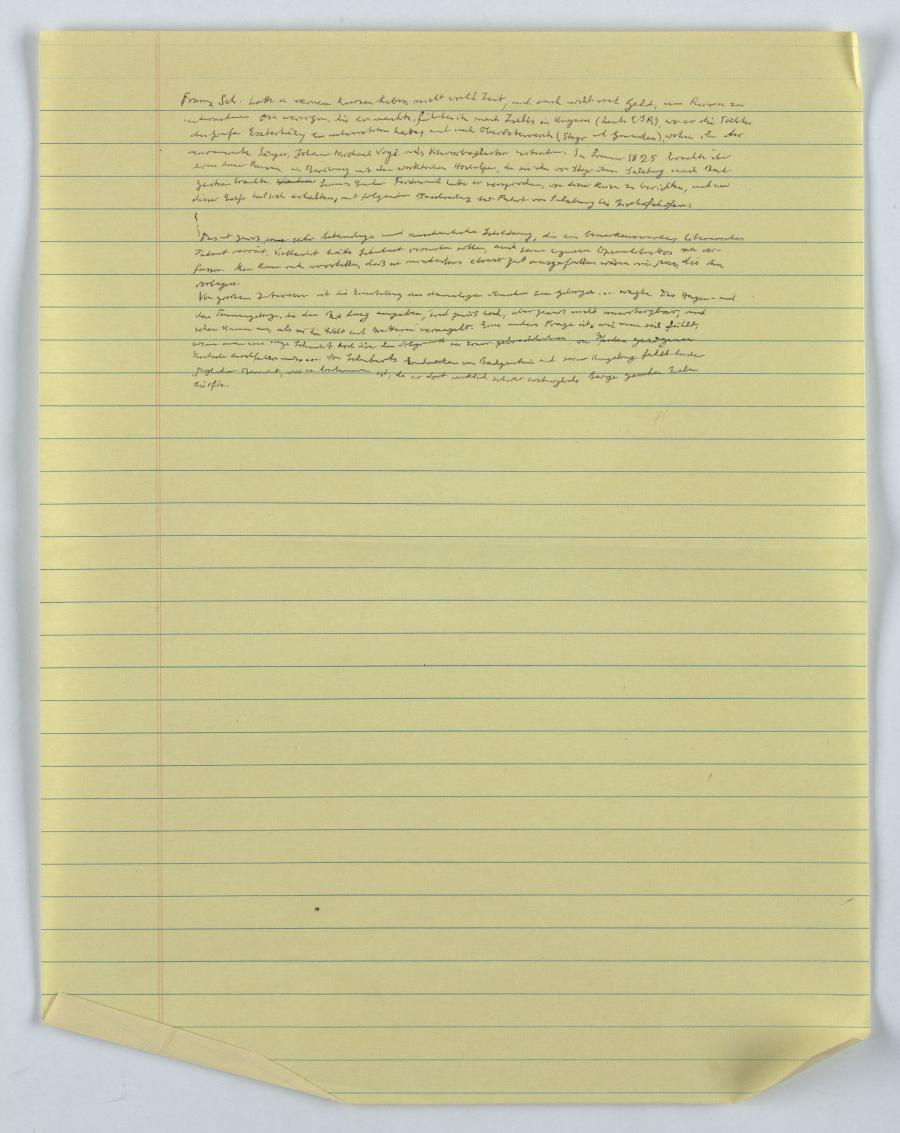 Franz Sch. hatte in seinem kurzen Leben nicht viel Zeit, und auch nicht viel Geld, um Reisen zu
unternehmen. Die wenigen, die er machte, führten ihn nach Zselis in Ungarn (heute ČSR), wo er die Töchter
des Grafen Eszterházy zu unterrichten hatte, und nach Oberösterreich (Steyr und Gmunden), wohin ihn der
renommierte Sänger, Johann Michael Vogl als Klavierbegleiter mitnahm. Im Sommer 1825 brachte ihn
eine dieser Reisen in Berührung mit den wirklichen Hochalpen, da sie ihn von Steyr über Salzburg nach Bad
Gastein brachte. Seinem Bruder Ferdinand hatte er versprochen, von dieser Reise zu berichten, und
dieser Briefe hat sich erhalten, mit folgender Beschreibung der Fahrt von Salzburg bis Bischofshofen:
{
Das ist gewiß eine sehr lebendige und anschauliche Schilderung, die ein bemerkenswertes literarisches
Talent verrät. Vielleicht hätte Schubert versuchen sollen, auch seine eigenen Opernlibrettos zu ver-
fassen. Man kann sich vorstellen, daß sie mindestens ebenso gut ausgefallen wären wie jene, die ihm
vorlagen.
Von großem Interesse ist die Einstellung des damaligen Menschen zum Gebirge ... wagte. Das Hagen- und
das Tennengebirge, die den Paß Lueg umgeben, sind gewiß hoch, aber gewiß nicht unersteigbar, und
sehen kaum aus, als sei die Welt mit Brettern vernagelt. Eine andere Frage ist, wie man sich fühlt,
wenn man eine enge Schlucht hoch über dem Abgrund in einer gebrechlichen, von Pferden gezogenen
Kutsche durchfahren muß.... Von Schuberts Eindrücken von Badgastein und seiner Umgebung fehlt leider
jeglicher Bericht, was zu bedauern ist, da er dort wirklich schwer ersteigbare Berge gesehen haben
dürfte.